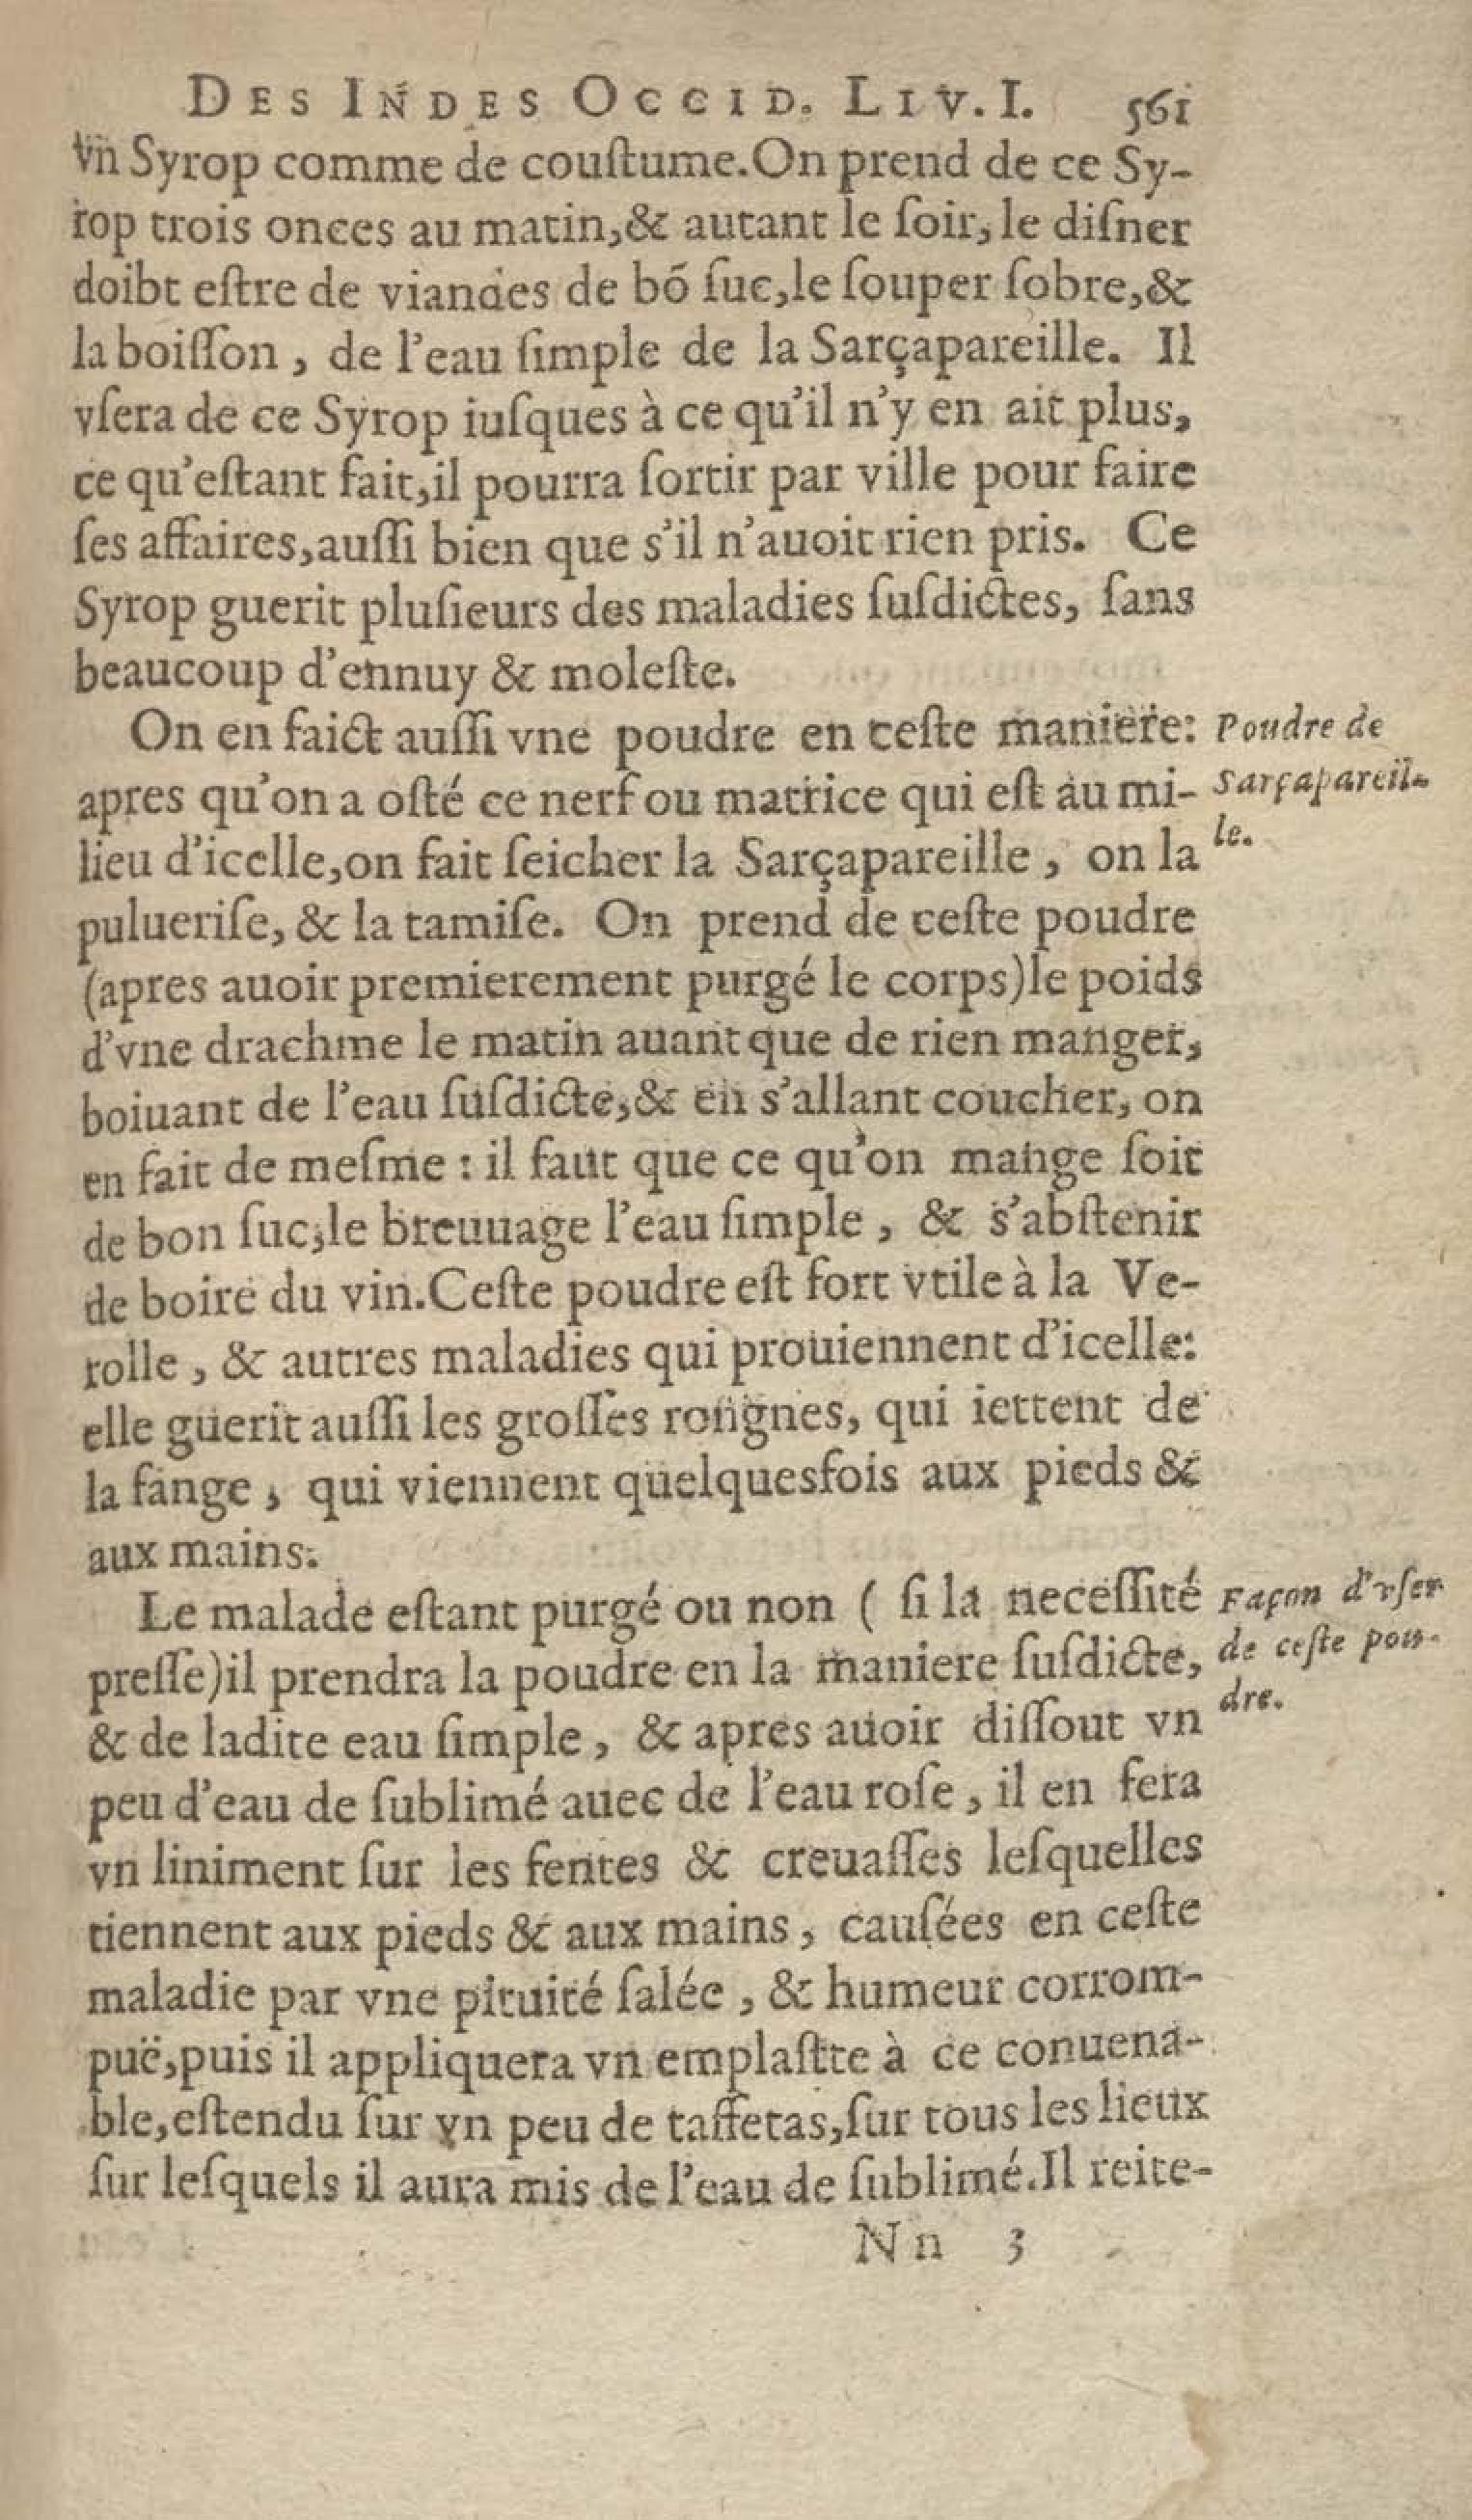 DES INDES OCCID. LIV. I. 561
vn Syrop comme de couſtume.On prend de ce Sy-
rop trois onces au matin,& autant le ſoir, le diſner
doibt eſtre de viandes de bõ ſuc,le ſouper ſobre,&
la boiſſon , de l'eau ſimple de la Sarçapareille. Il
vſera de ce Syrop iuſques à ce qu'il n'y en ait plus,
ce qu'eſtant fait,il pourra ſortir par ville pour faire
ſes affaires,auſſi bien que s'il n'auoit rien pris. Ce
Syrop guerit pluſieurs des maladies ſuſdictes, ſans
beaucoup d'ennuy & moleſte.
On en faict auſſi vne poudre en ceſte maniere: Poudre de
apres qu'on a oſté ce nerf ou matrice qui eſt au mi- Sarçapareil-
lieu d'icelle,on fait ſeicher la Sarçapareille , on la le.
pulueriſe, & la tamiſe. On prend de ceſte poudre
(apres auoir premierement purgé le corps)le poids
d'vne drachme le matin auant que de rien manger,
boiuant de l'eau ſuſdicte,& en s'allant coucher, on
en fait de meſme : il faut que ce qu'on mange ſoit
de bon ſuc,le breuuage l'eau ſimple , & s'abſtenir
de boire du vin.Ceſte poudre eſt fort vtile à la Ve-
rolle , & autres maladies qui prouiennent d'icelle:
elle guerit auſſi les groſſes rongnes, qui iettent de
la fange , qui viennent quelquesfois aux pieds &
aux mains.
Le malade eſtant purgé ou non ( ſi la neceſſité Façon d'vſer
preſſe)il prendra la poudre en la maniere ſuſdicte, de ceſte pou-
& de ladite eau ſimple , & apres auoir diſſout vn dre.
peu d'eau de ſublimé auec de l'eau roſe , il en fera
vn liniment ſur les fentes & creuaſſes leſquelles
tiennent aux pieds & aux mains , cauſées en ceſte
maladie par vne pituité ſalée , & humeur corrom-
puë,puis il appliquera vn emplaſtre à ce conuena-
ble,eſtendu ſur vn peu de taffetas,ſur tous les lieux
ſur leſquels il aura mis de l'eau de ſublimé.Il reite-
Nn 3